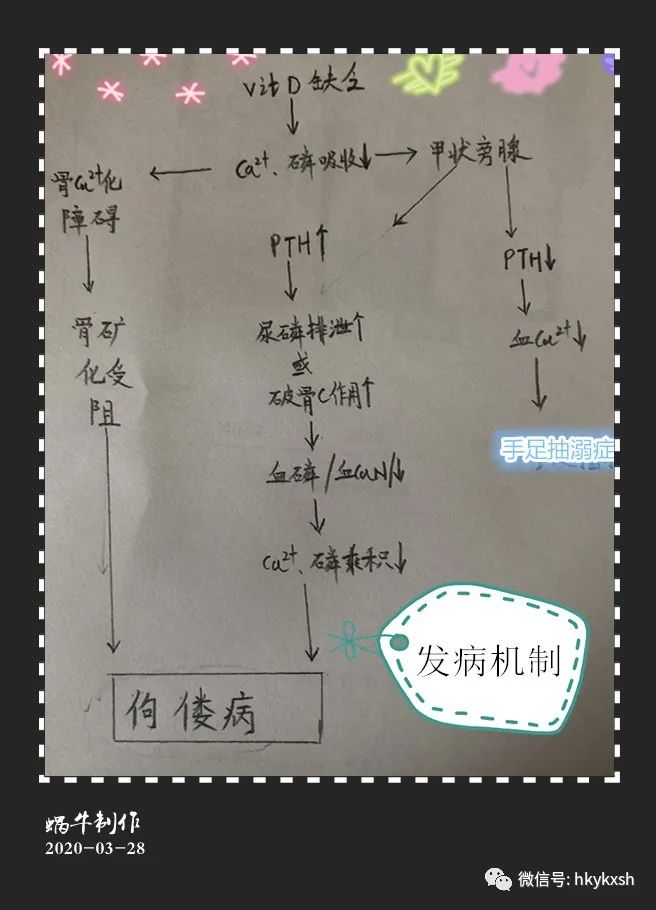 vit D 缺乏
Ca²⁺、磷吸收↓ → 甲状旁腺
骨Ca²⁺化
障碍
PTH↑
PTH↓
骨矿
化受
阻
尿磷排泄↑
或
破骨C作用↑
血Ca²⁺↓
手足抽溺症
血磷/血Ca(N)/↓
Ca²⁺、磷乘积↓
佝偻病
发病机制
蜗牛制作
2020-03-28
微信号: hkykxsh